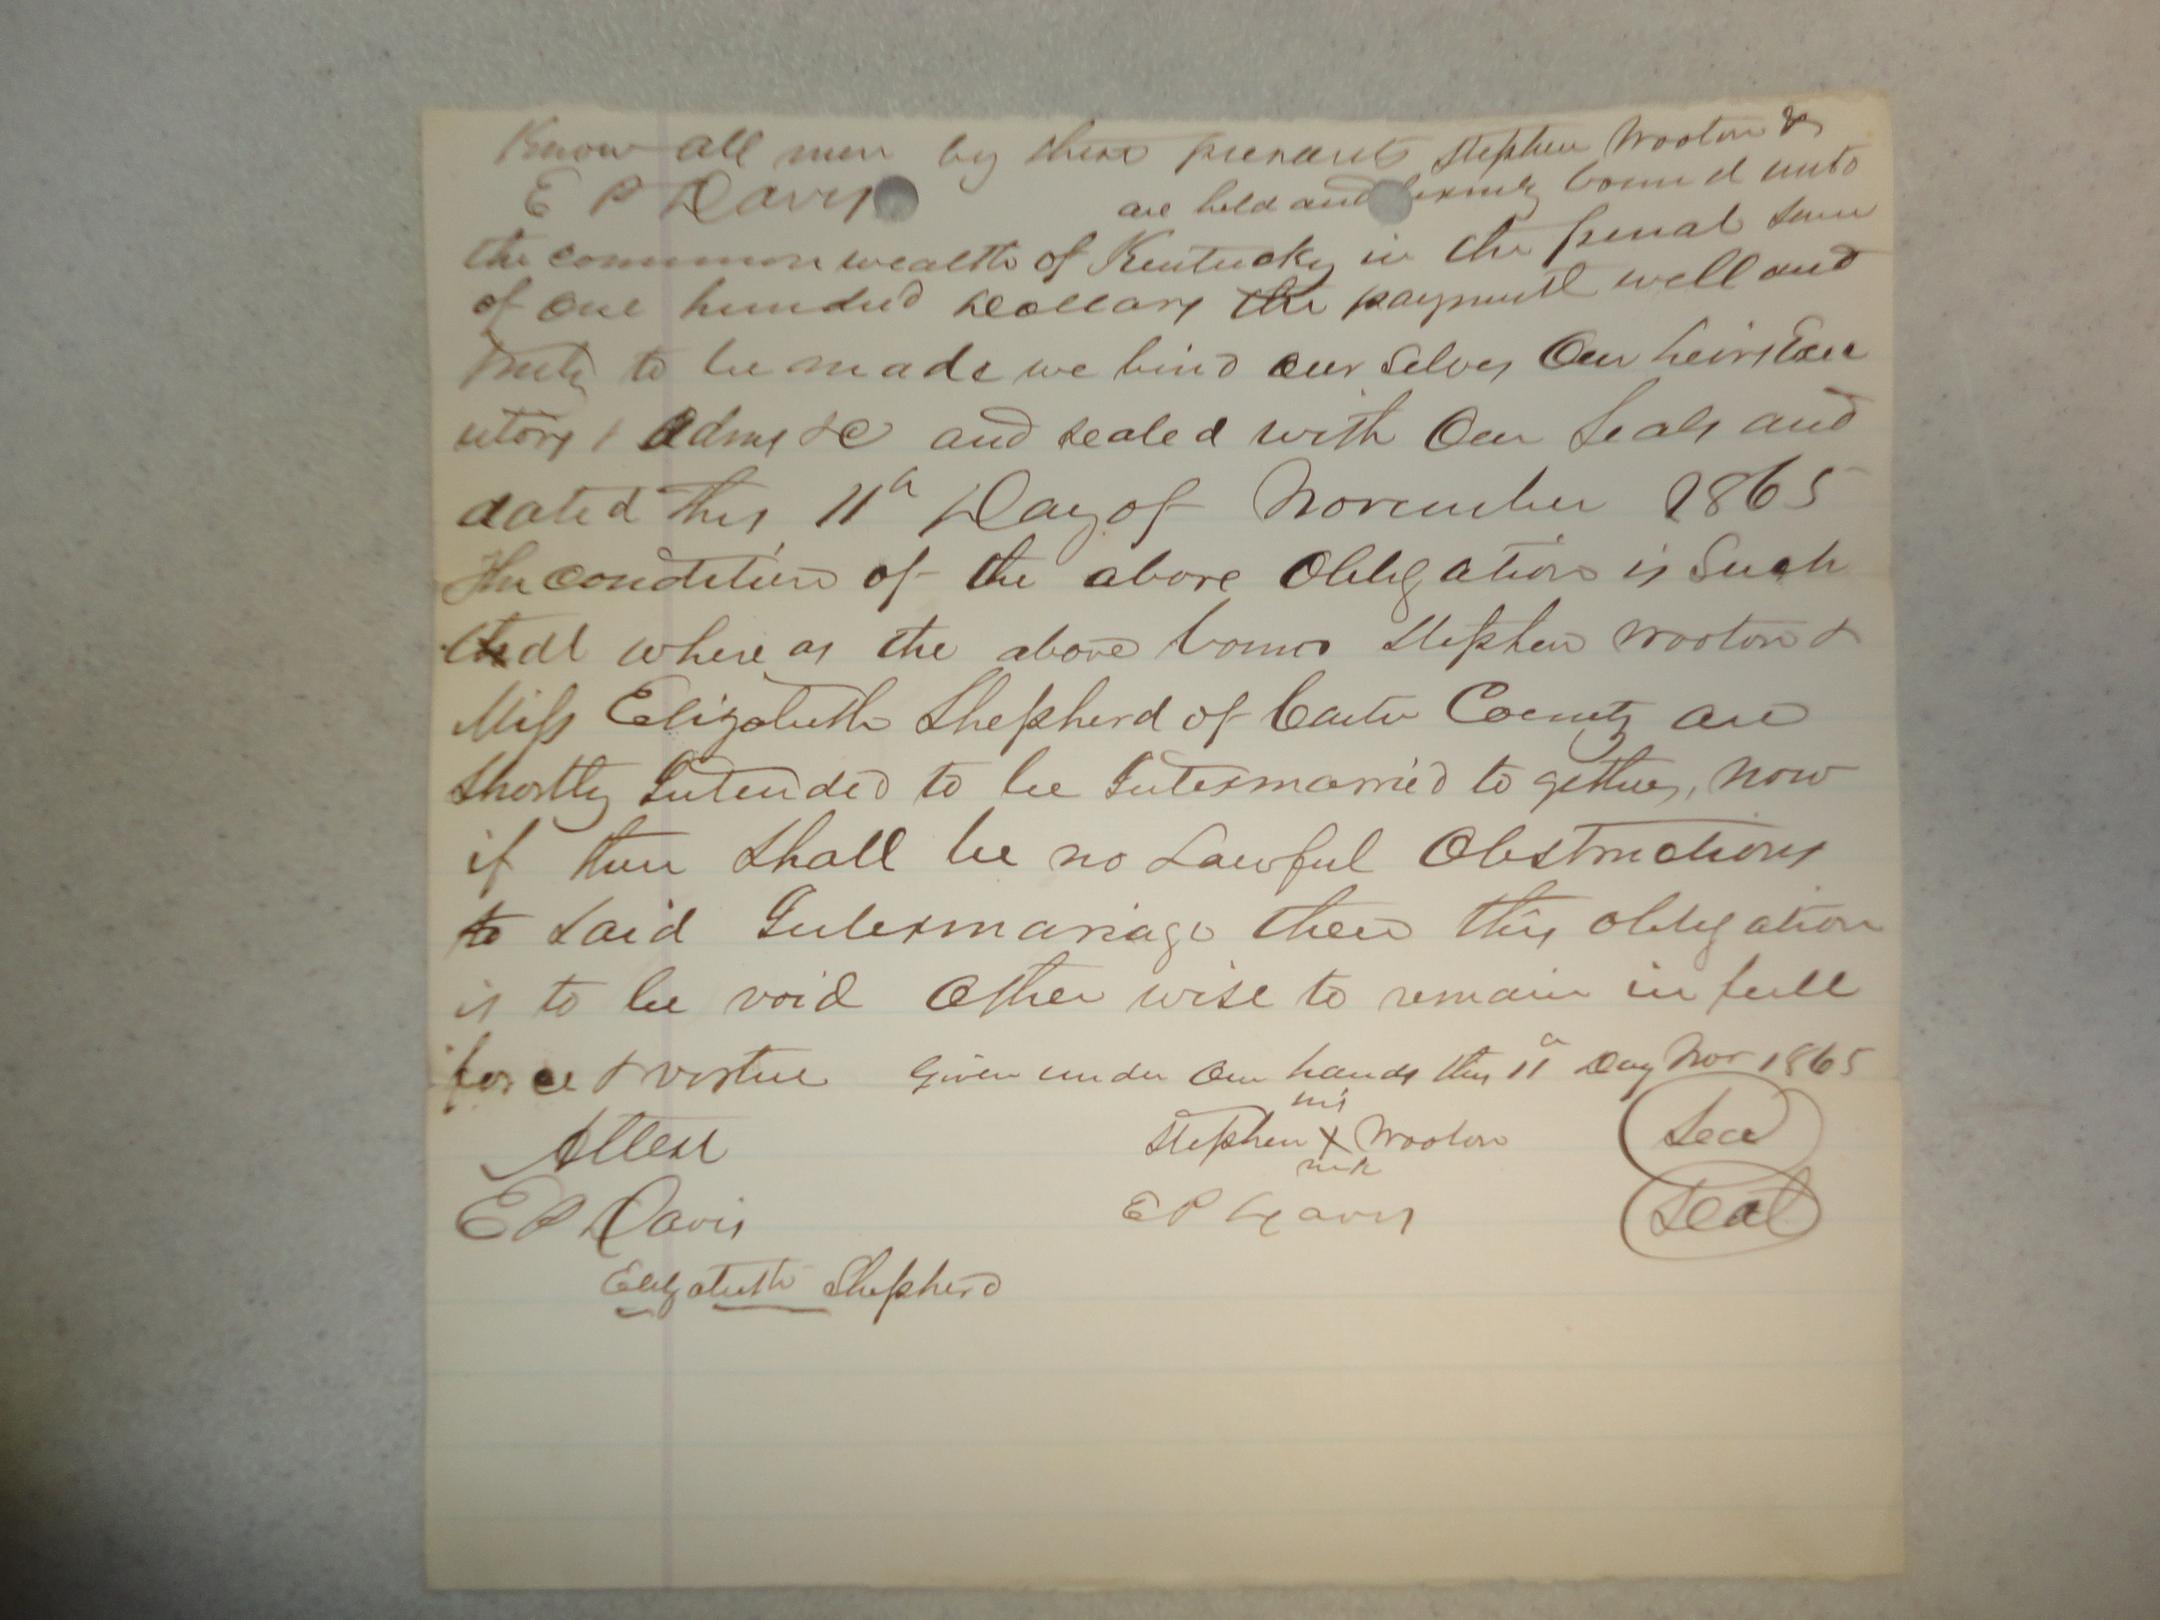 Know all men by these presents Stephen Wooton &
E P Davis are held and firmly bound unto
the common wealth of Kentucky in the penal sum
of one hundred Dollars the payment well and
truly to be made we bind our selves Our heirs Exec
utors & Adms &C and sealed with Our Seals and
dated this 11th Day of November 1865
The condition of the above Obligation is Such
that where as the above boun Stephen Wooton &
Miss Elizabeth Shepherd of Carter County are
Shortly Intended to be Intermarried to gether, Now
if there Shall be no Lawful Obstructions
to Said Intermariage then this obligation
is to be void Other wise to remain in full
force & virtue Given under Our hands this 11th Day Nov 1865
his
Attest Stephen X Wooton Seal
mrk
E P Davis E P Davis Seal
Elizabeth Shepherd